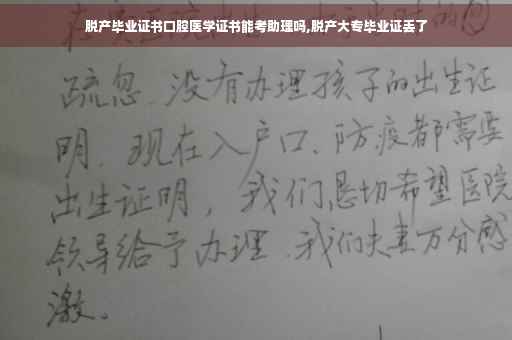 脱产毕业证书口腔医学证书能考助理吗,脱产大专毕业证丢了
疏忽、没有办理孩子的出生证
明、现在入户口、防疫都需要
出生证明，我们恳切希望医院
领导给予办理、我们夫妻万分感
激。